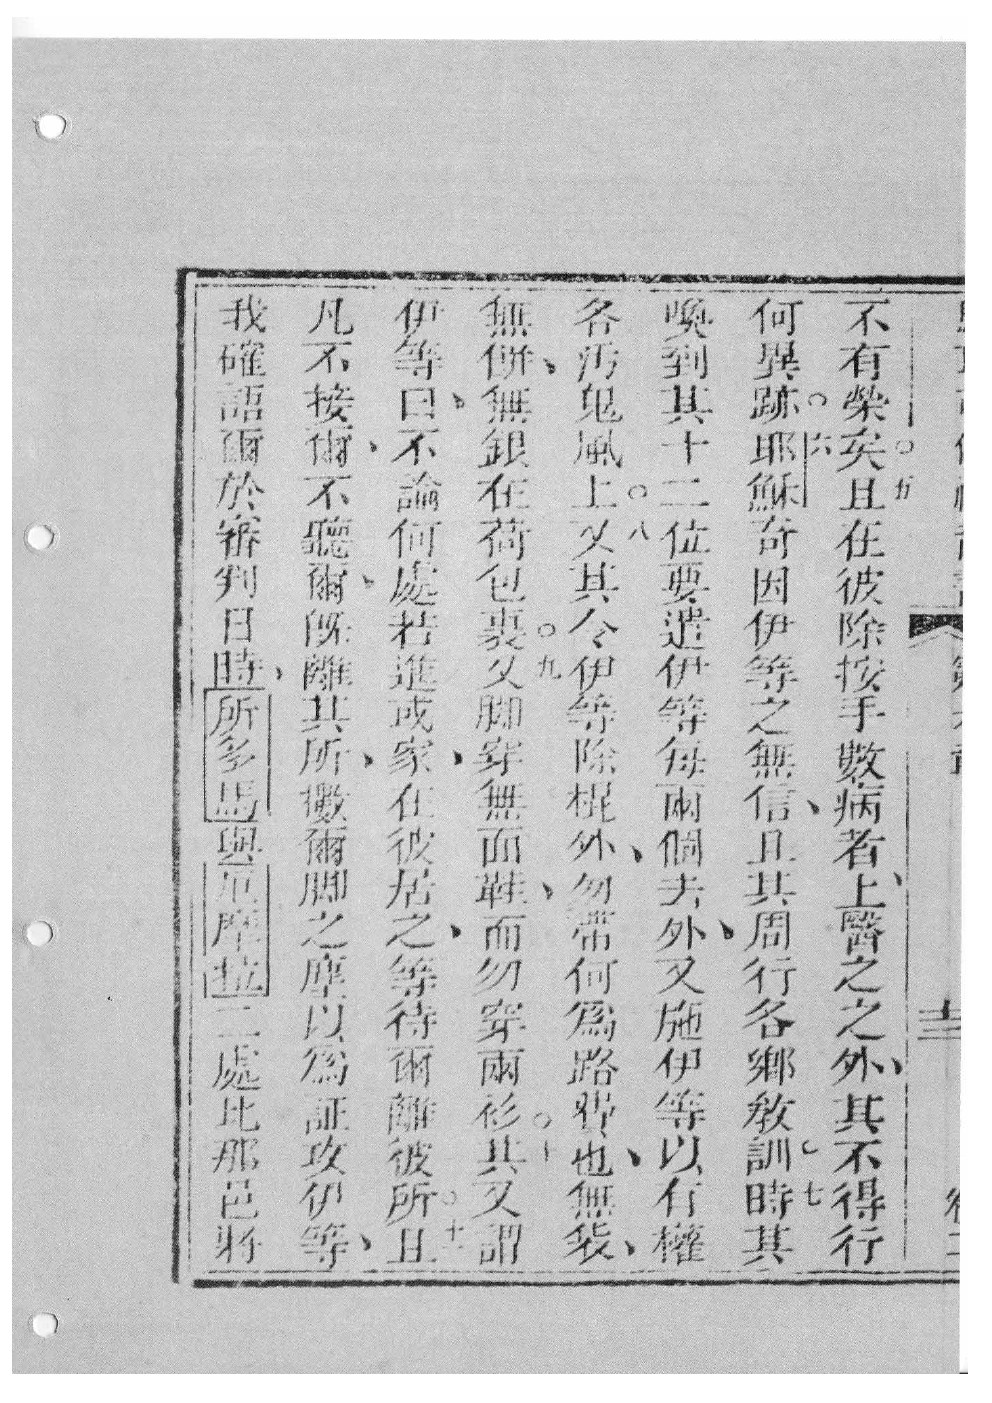 不有榮矣○五且在彼除按手數病者、上醫之之外、其不得行
何異跡○六耶穌奇因伊等之無信、且其周行各鄉敎訓○七時其
喚到其十二位要遣伊等每兩個去外、又施伊等以有權
各汚鬼風上○八又其令伊等除棍外、勿帶何為路費也、無袋、
無併、無銀在荷包裏○九又脚穿無面鞋、而勿穿兩衫○十其又謂
伊等曰、不論何處若進或家、在彼居之、等待爾離彼所○十一且
凡不接爾、不聽爾、旣離其所、擻爾脚之塵以為証攻伊等、
我確語爾於審判日時、所多馬與厄摩拉二處比那邑將